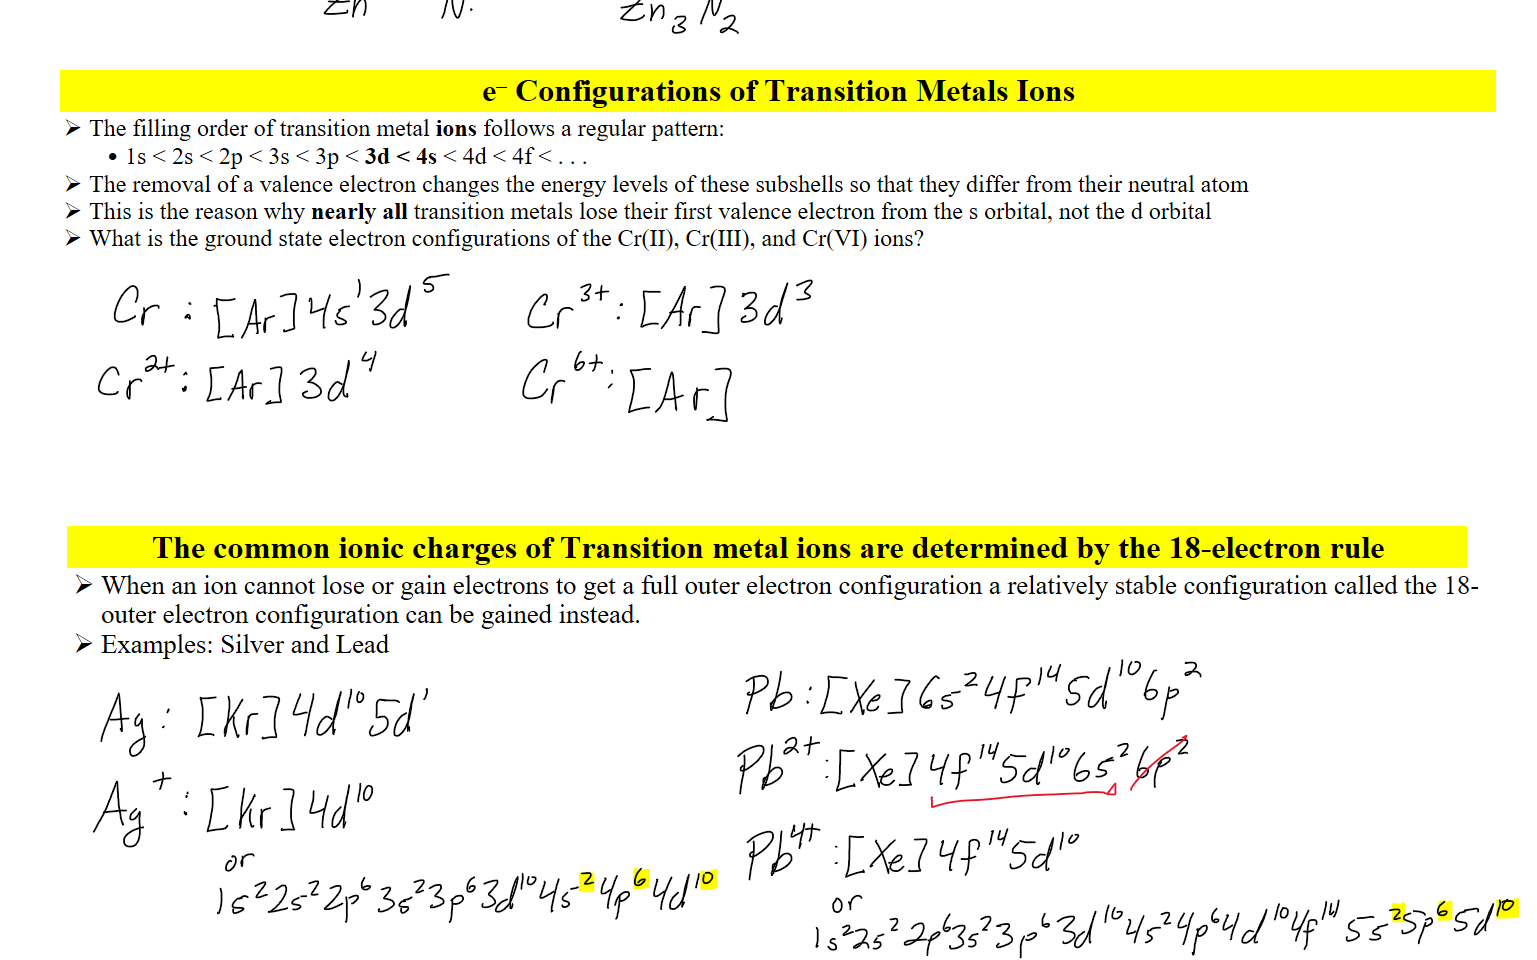 Zn N. Zn₃N₂
e⁻ Configurations of Transition Metals Ions
➢ The filling order of transition metal ions follows a regular pattern:
• 1s < 2s < 2p < 3s < 3p < 3d < 4s < 4d < 4f < . . .
➢ The removal of a valence electron changes the energy levels of these subshells so that they differ from their neutral atom
➢ This is the reason why nearly all transition metals lose their first valence electron from the s orbital, not the d orbital
➢ What is the ground state electron configurations of the Cr(II), Cr(III), and Cr(VI) ions?
Cr : [Ar]4s¹3d⁵
Cr³⁺: [Ar]3d³
Cr²⁺: [Ar]3d⁴
Cr⁶⁺: [Ar]
The common ionic charges of Transition metal ions are determined by the 18-electron rule
➢ When an ion cannot lose or gain electrons to get a full outer electron configuration a relatively stable configuration called the 18-
outer electron configuration can be gained instead.
➢ Examples: Silver and Lead
Ag: [Kr]4d¹⁰5d¹
Ag⁺: [Kr]4d¹⁰
or
1s²2s²2p⁶3s²3p⁶3d¹⁰4s²4p⁶4d¹⁰
Pb:[Xe]6s²4f¹⁴5d¹⁰6p²
Pb²⁺:[Xe]4f¹⁴5d¹⁰6s²6p²
Pb⁴⁺:[Xe]4f¹⁴5d¹⁰
or
1s²2s²2p⁶3s²3p⁶3d¹⁰4s²4p⁶4d¹⁰4f¹⁴5s²5p⁶5d¹⁰